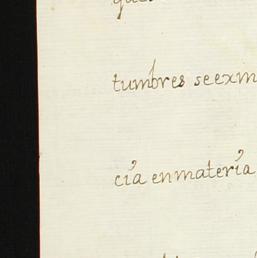 tumbres se exim
cía en materia